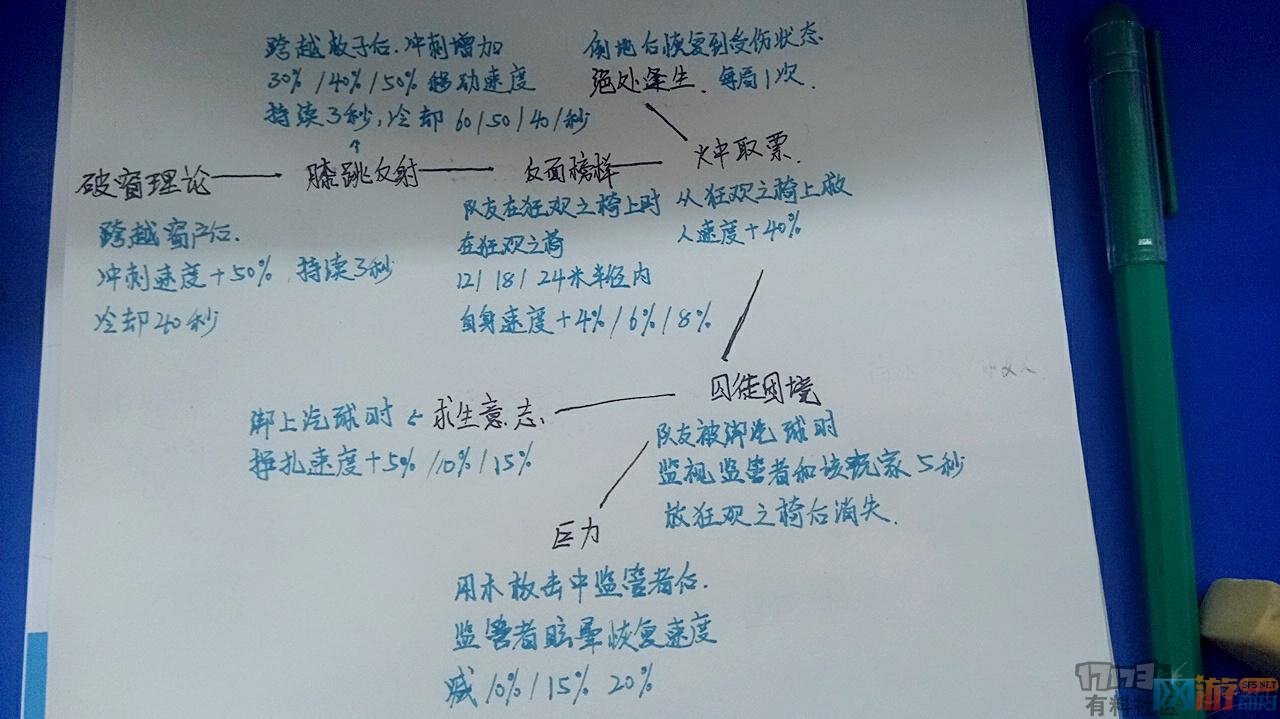 跨越板子后.冲刺增加
30% / 40% / 50% 移动速度
持续3秒,冷却 60/50/40/秒
倒地后恢复到受伤状态
绝处逢生.每局1次.
破窗理论
膝跳反射
反面榜样
火中取栗.
跨越窗户后.
冲刺速度+50% 持续3秒
冷却40秒
队友在狂欢之椅上时
在狂欢之椅
12/18/24米半径内
自身速度+4%/6%/8%
从狂欢之椅上救
人速度+40%
囚徒困境
队友被绑气球时
监视监管者和该玩家5秒
放狂欢之椅后消失.
求生意志.
绑上气球时
挣扎速度+5%/10%/15%
巨力
用木板击中监管者后.
监管者眩晕恢复速度
减10%/15% 20%
17173
有料
网游
SF5.NET